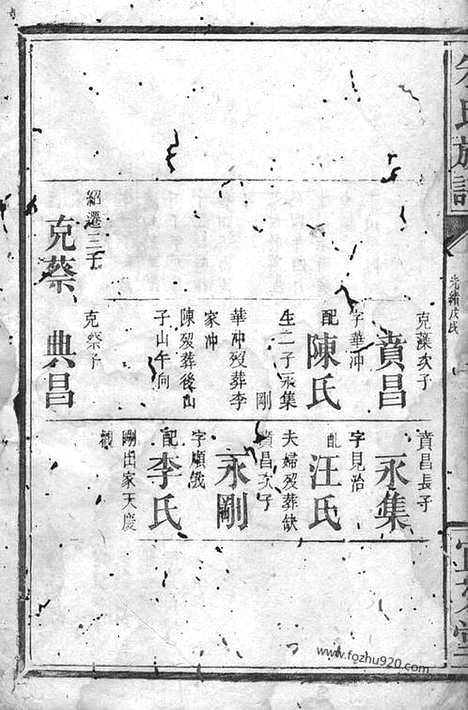 氏族譜
光緒戊戌
紹選三子
克蔡
克藻次子
賁昌
字華冲
配陳氏
生二子永集
剛
華冲歿葬李
家冲
陳歿葬後山
子山午向
克蔡子
典昌
賁昌長子
永集
字見治
配汪氏
夫婦歿葬缺
賁昌次子
永剛
字順
配李氏
剛出家天慶
堂
www.fozhu920.com